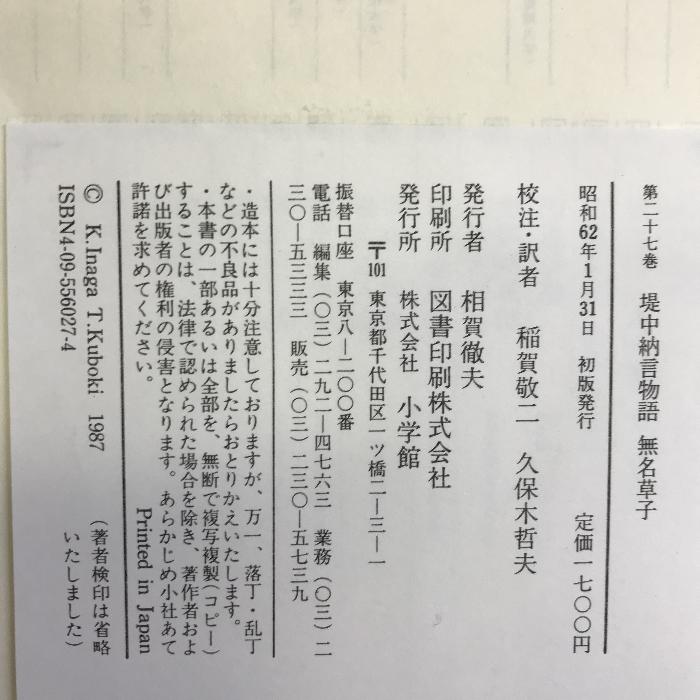 第二十七巻 堤中納言物語 無名草子
昭和62年1月31日 初版発行 定価一七〇〇円
校注・訳者 稲賀敬二 久保木哲夫
発行者 相賀徹夫
印刷所 図書印刷株式会社
発行所 株式会社 小学館
〒101 東京都千代田区一ツ橋二―三―一
振替口座 東京八―二〇〇番
電話 編集(〇三)二九二―四七六三 業務(〇三)二
三〇―五三三三 販売(〇三)二三〇―五七三九
・造本には十分注意しておりますが、万一、落丁・乱丁
などの不良品がありましたらおとりかえいたします。
・本書の一部あるいは全部を、無断で複写複製(コピー)
することは、法律で認められた場合を除き、著作者およ
び出版者の権利の侵害となります。あらかじめ小社あて
許諾を求めてください。 Printed in Japan
© K.Inaga T.Kuboki 1987 (著者検印は省略
ISBN4-09-556027-4 いたしました)